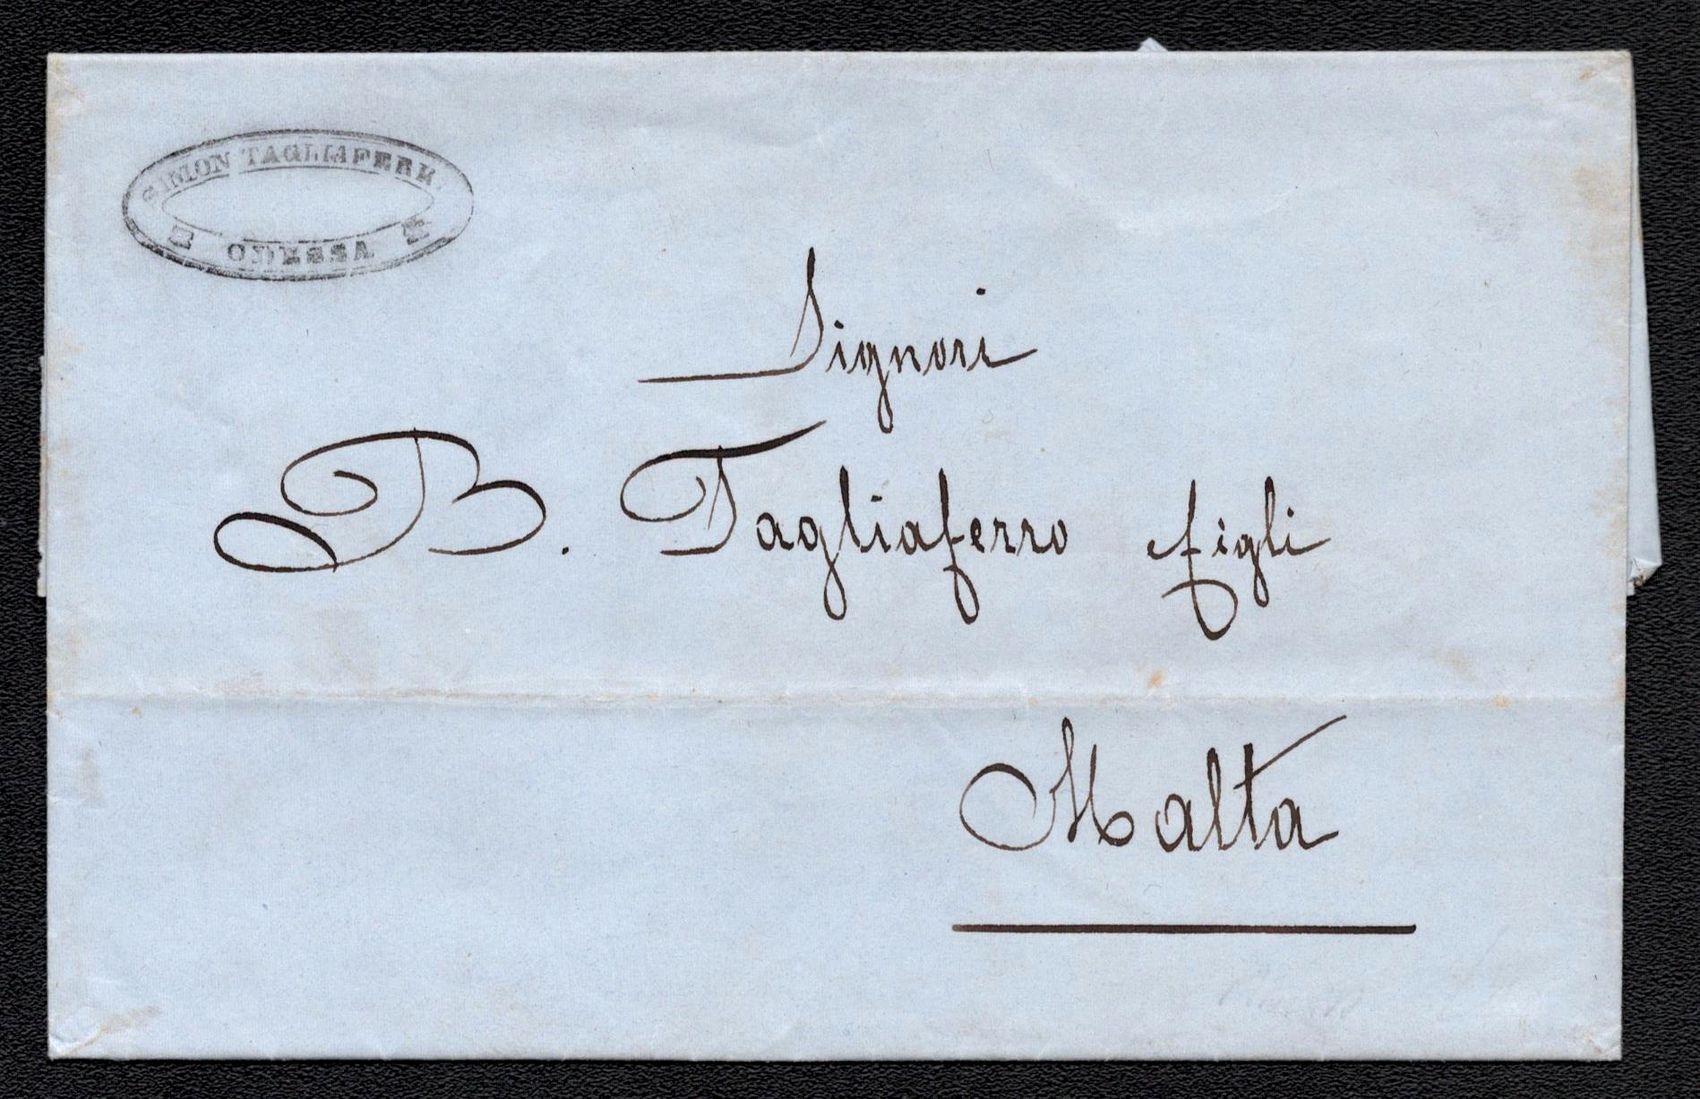 SIMON TAGLIAFERR
ODESSA
Signori
B. Tagliaferro figli
Malta